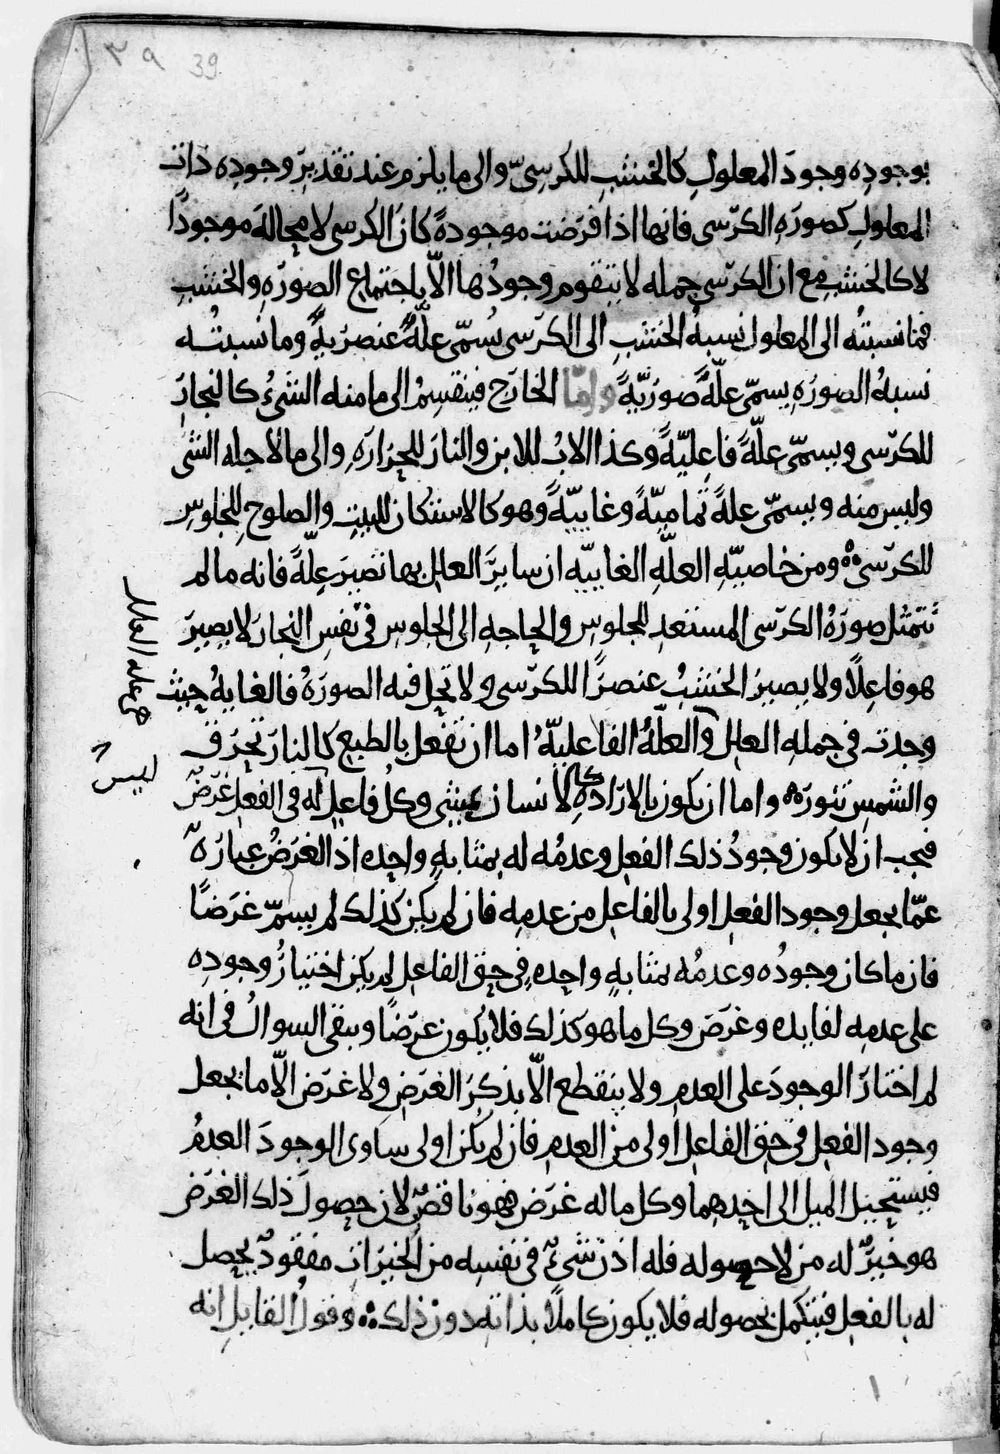 ٣٩ 39
بوجوده وجودَ المعلول كالخشب للكرسيّ والى ما يلزم عند تقدير وجوده ذات
المعلول كصوره الكرّسى فانها اذا فرضت موجودةً كان الكرسى لا محالة موجودًا
لا كالخشب مع ان الكرّسى جمله لا يتقوم وجودُها الّا باجتماع الصورَه والخشب
فما نسبتُه الى المعلول نسبهُ الخشب الى الكرّسى يُسمّى علّةً عنصريةً وما نسبتُه
نسبهُ الصورَه يسمّى علّةً صوريّةً وامّا الخارج فينقسِمُ الى ما منه الشئُ كالنجار
للكرّسى ويسمّى علّةً فاعِليّةً وكذا الابُ للابن والنار للحرارَه والى ما لاجله الشى
وليس منه ويسمّى علةً تماميّةً وغاييّةً وهو كالاستكان للبيتِ والصلوح للجلوسِ
للكرّسى ومن خاصيّهِ العلّهِ الغاييّه ان سايرَ العلل بها تصيرَ علّةً فانه ما لم
تتمثل صورَهُ الكرّسى المستعد للجلوس والحاجه الى الجلوس فى نفس النجار لا يصيرَ
هو فاعِلًا ولا يصير الخشبُ عنصرًا للكرّسى ولا تحل فيه الصورَهُ فالغايهُ حيث
وجدت فى جملهِ العلل والعلّهُ الفاعليّهُ اما ان تفعل بالطبع كالنار تحرق
والشمس تنورَ واما ان يكون بالارادَه كالانسان يمشى وكل فاعِل له فى الفعل غرَضٌ
فيجب ان لا يكون وجودُ ذلك الفعل وعدمُه له بمثابهٍ واحِده اذ الغرَضُ عبارَهٌ
عمّا يجعل وجود الفعل اولى بالفاعل من عدمِه فان لم يكن كذلك لم يسمّ غرَضًا
فان ما كان وجودُه وعدمُه بمثابهٍ واحِدهٍ فى حق الفاعل لم يكن اختيارُ وجودِه
على عدمه لفايده وغرَض وكل ما هو كذلك فلا يكون غرَضًا ويبقى السوالُ فى انه
لم اختارَ الوجودَ على العدم ولا ينقطع الّا بذكرَ الغرَض ولا غرَض الّا ما يجعل
وجود الفعل فى حق الفاعل اولى من العدم فان لم يكن اولى ساوى الوجودَ العدمُ
فيستحيل الميل الى احدهما وكل ما له غرَض فهو ناقصٌ لان حصولَ ذلك الغرَض
هو خيرٌ له من لا حصوله فله اذن شىءٌ فى نفسِه من الخيرَات مفقودٌ يحصل
له بالفعل فيتكمل بحصوله فلا يكون كاملًا بذاته دون ذلك وقولُ القايل انه
جمله العلل
ليس